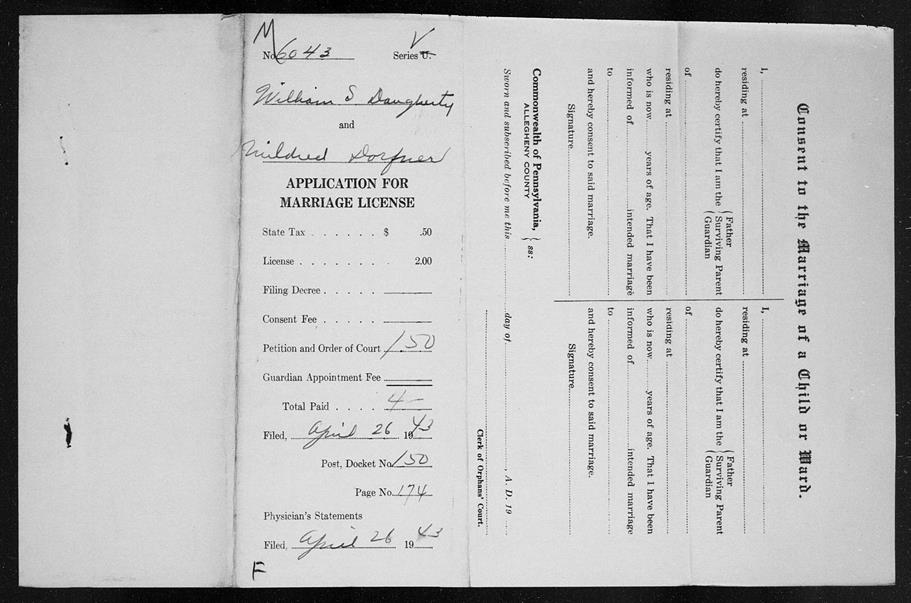 M
No. 6043 Series U. V
William S Daugherty
and
Mildred Dorfner
APPLICATION FOR
MARRIAGE LICENSE
State Tax . . . . . . $ .50
License . . . . . . . 2.00
Filing Decree . . . . .
Consent Fee . . . . .
Petition and Order of Court 1.50
Guardian Appointment Fee
Total Paid . . . . 4—
Filed, April 26 1943
Post, Docket No. 150
Page No. 174
Physician's Statements
Filed, April 26 1943
F
Consent to the Marriage of a Child or Ward.
I,
residing at
do hereby certify that I am the { Father
Surviving Parent
Guardian
of
residing at
who is now years of age. That I have been
informed of intended marriage
to
and hereby consent to said marriage.
Signature
I,
residing at
do hereby certify that I am the { Father
Surviving Parent
Guardian
of
residing at
who is now years of age. That I have been
informed of intended marriage
to
and hereby consent to said marriage.
Signature
Commonwealth of Pennsylvania, } ss:
ALLEGHENY COUNTY
Sworn and subscribed before me this day of , A. D. 19
Clerk of Orphans' Court.